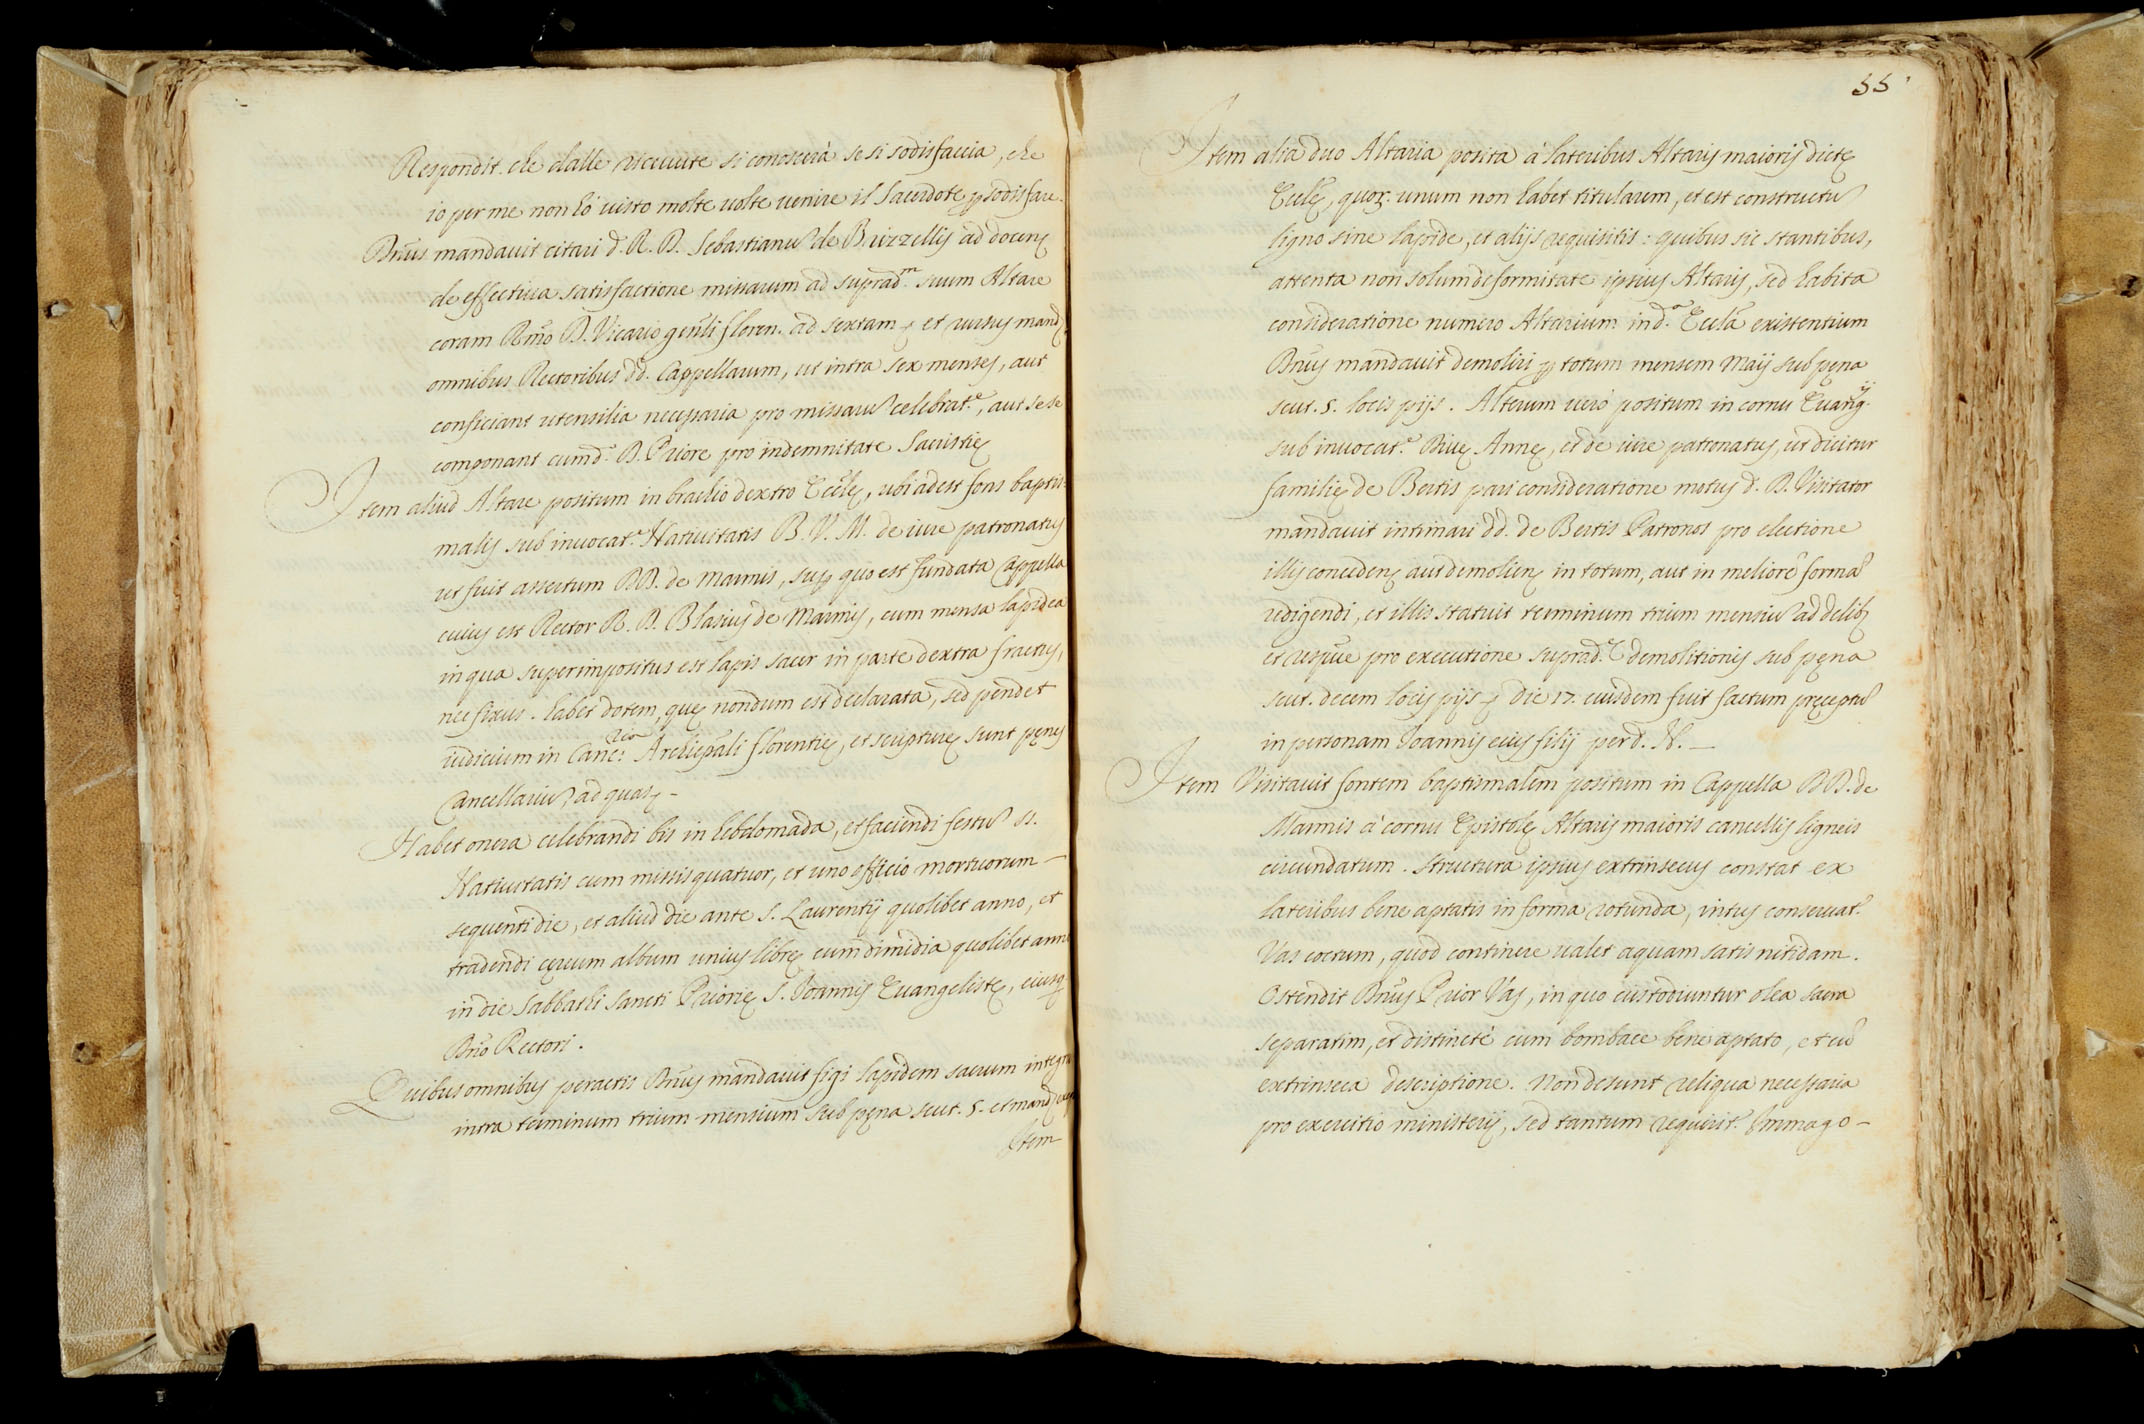 Respondit. che dalle riceuute si conoscerà se si sodisfaccia, che
io per me non hò uisto molte uolte uenire il Sacerdote p sodisfare.
Dnus mandauit citari d. R. D. Sebastianu de Brizzellis ad docen
de effectiua satisfactione missarum ad suprad.m suum Altare
coram Rmo D. Vicario gnli floren. ad sextam et rursus mand
omnibus Rectoribus dd. Cappellarum, ut intra sex menses, aut
conficiant utensilia necessaria pro missaru celebrat.e, aut sese
componant cum d.o D. Priore pro indemnitate Sacristię
Item aliud Altare positum in brachio dextro Eccłę, ubi adest fons baptis=
malis sub inuocat.e Natiuitatis B. V. M. de iure patronatus
ut fuit assertum DD. de Marmis, sup quo est fundata Cappella
cuius est Rector R. D. Blasius de Marmis, cum mensa lapidea
in qua superimpositus est lapis sacer in parte dextra fractus,
nec fixus. habet dotem, quę nondum est declarata, sed pendet
iudicium in Canc:ria Archiepāli florentię, et scripturę sunt penes
Cancellariu ad quas -
Habet onera celebrandi bis in hebdomada, et faciendi festu SS.
Natiuitatis cum missis quatuor, et uno officio mortuorum -
sequenti die, et aliud die ante S. Laurentij quolibet anno, et
tradendi cęreum album unius librę cum dimidia quolibet anno
in die Sabbathi Sancti Priorię S. Joannis Euangelistę, eiusq
Dno Rectori.
Quibus omnibus peractis Dnus mandauit figi lapidem sacrum integru
intra terminum trium mensium sub pęna scut. 5. et mand
Item
55
Item alia duo Altaria posita à lateribus Altaris maioris dictę
Eccłę, quor. unum non habet titularum, et est constructu
ligno sine lapide, et alijs requisitis: quibus sic stantibus,
attenta non solum deformitate ipsius Altaris, sed habita
consideratione numero Altarium in d.a Eccłā existentium
Dnus mandauit demoliri p totum mensem Maij sub pęna
scut. 5. locis pijs. Alterum uerò positum in cornu Euang.ij
sub inuocat.e Diuę Annę, et de iure patronatus, ut dicitur
familię de Bertis pari consideratione motus d. D. Visitator
mandauit intimari dd. de Bertis Patronos pro electione
illis conceden aut demolien in totum, aut in meliorē forma
redigendi, et illis statuit terminum trium mensiu ad delib
et respiue pro executione suprad.e demolitionis sub pęna
scut. decem locis pijs die 17. eiusdem fuit factum pręceptu
in personam Joannis eius filij per d. N. -
Item Visitauit fontem baptismalem positum in Cappella DD. de
Marmis à cornu Epistolę Altaris maioris cancellis ligneis
circundatum. Structura ipsius extrinsecus constat ex
lateribus bene aptatis in forma rotunda, intus conseruat.
Vas coctum, quod continere ualet aquam satis nitidam.
Ostendit Dnus Prior Vas, in quo custodiuntur olea sacra
separatim, et distinctè cum bombace bene aptato, et cu
extrinseca descriptione. Non desunt reliqua necessaria
pro exercitio ministerij, sed tantum requirit. Immago -